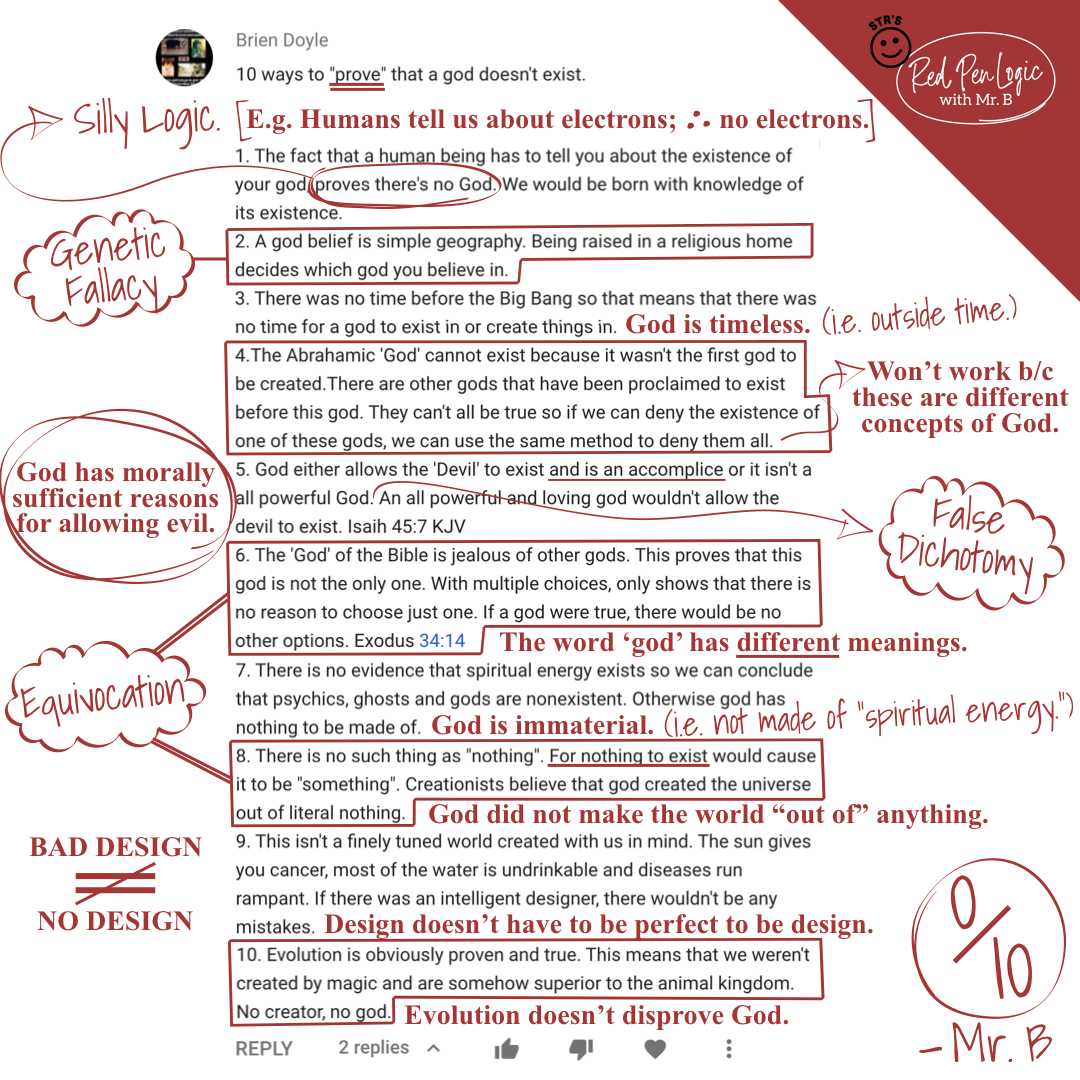 STR'S
Red Pen Logic
with Mr. B
Brien Doyle
10 ways to "prove" that a god doesn't exist.
Silly Logic. [E.g. Humans tell us about electrons; ∴ no electrons.]
1. The fact that a human being has to tell you about the existence of
your god proves there's no God. We would be born with knowledge of
its existence.
Genetic
Fallacy
2. A god belief is simple geography. Being raised in a religious home
decides which god you believe in.
3. There was no time before the Big Bang so that means that there was
no time for a god to exist in or create things in. God is timeless. (i.e. outside time.)
4.The Abrahamic 'God' cannot exist because it wasn't the first god to
be created.There are other gods that have been proclaimed to exist
before this god. They can't all be true so if we can deny the existence of
one of these gods, we can use the same method to deny them all.
Won't work b/c
these are different
concepts of God.
God has morally
sufficient reasons
for allowing evil.
5. God either allows the 'Devil' to exist and is an accomplice or it isn't a
all powerful God. An all powerful and loving god wouldn't allow the
devil to exist. Isaih 45:7 KJV
False
Dichotomy
6. The 'God' of the Bible is jealous of other gods. This proves that this
god is not the only one. With multiple choices, only shows that there is
no reason to choose just one. If a god were true, there would be no
other options. Exodus 34:14 The word 'god' has different meanings.
Equivocation
7. There is no evidence that spiritual energy exists so we can conclude
that psychics, ghosts and gods are nonexistent. Otherwise god has
nothing to be made of. God is immaterial. (i.e. not made of "spiritual energy.")
8. There is no such thing as "nothing". For nothing to exist would cause
it to be "something". Creationists believe that god created the universe
out of literal nothing. God did not make the world "out of" anything.
BAD DESIGN
≠
NO DESIGN
9. This isn't a finely tuned world created with us in mind. The sun gives
you cancer, most of the water is undrinkable and diseases run
rampant. If there was an intelligent designer, there wouldn't be any
mistakes. Design doesn't have to be perfect to be design.
10. Evolution is obviously proven and true. This means that we weren't
created by magic and are somehow superior to the animal kingdom.
No creator, no god. Evolution doesn't disprove God.
0/10
- Mr. B
REPLY 2 replies